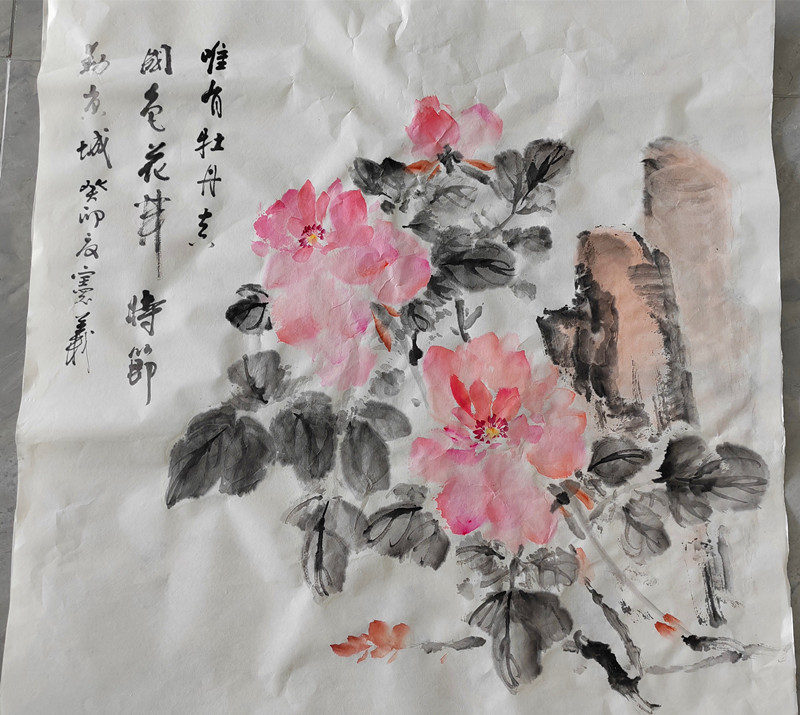 唯有牡丹真
國色花開時節
動京城 癸卯夏憲義